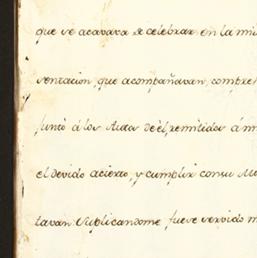 que se acavava de celebrar en la mi
sentacion, que acompañavan, compre
junto á los Autos de él, remitidos á mi
el devido acierto, y cumplir con su Mo
tavan Suplicandome fuese servido m